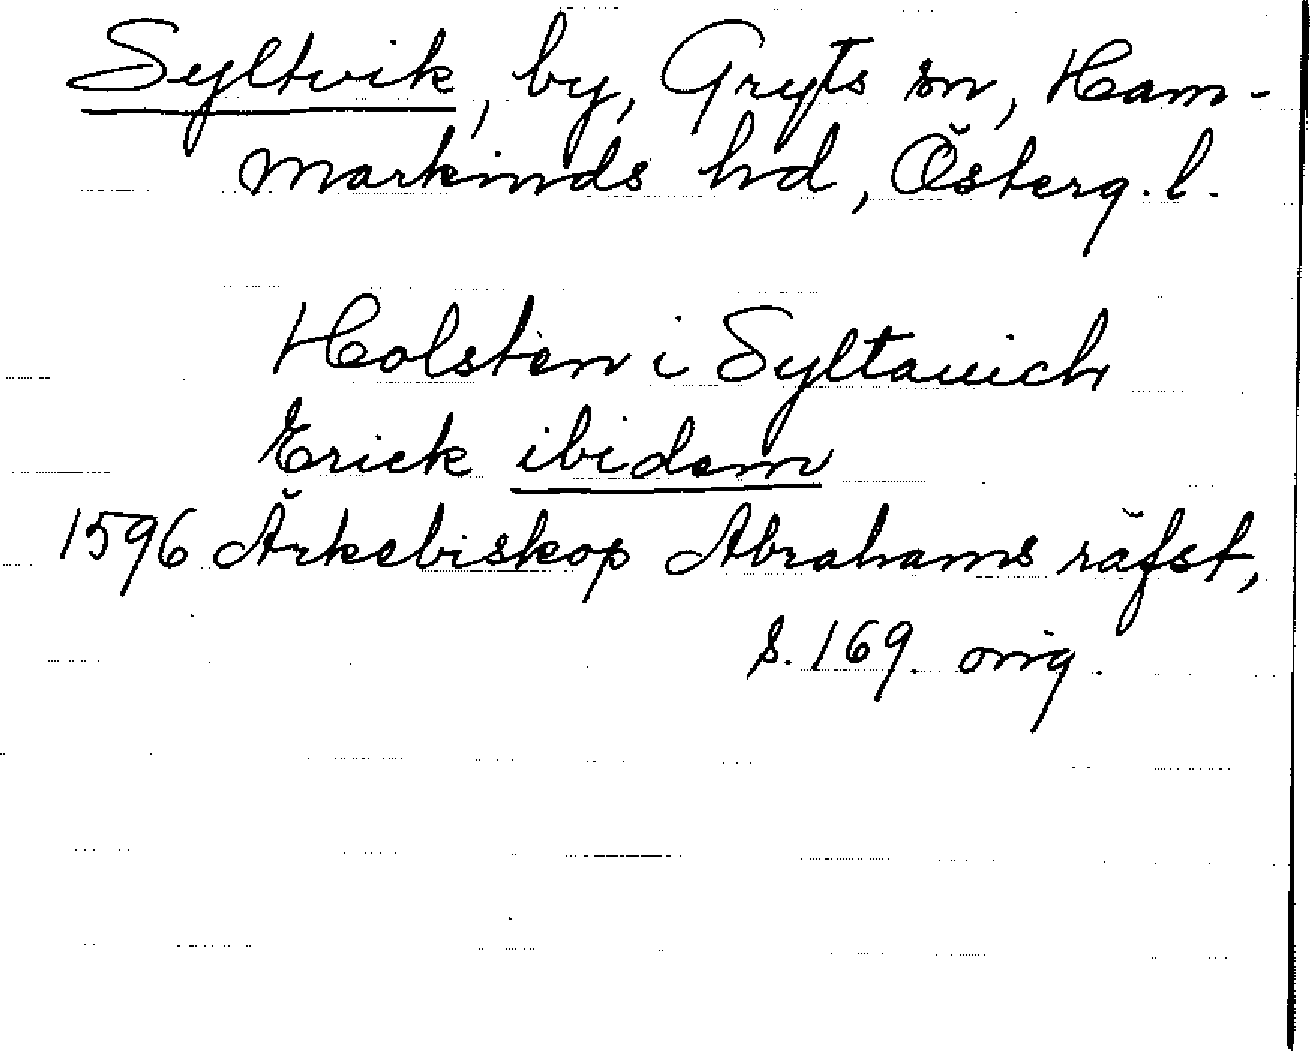 Syltvik, by, Gryts sn, Ham-
markinds hd, Österg. l.
Holsten i Syltauich
Erick ibidem
1596 Ärkebiskop Abrahams räfst,
s. 169. orig.